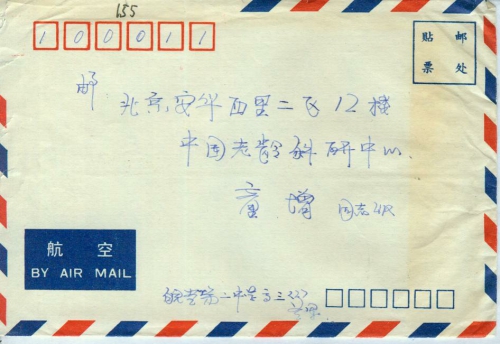 155
100011
贴 邮
票 处
邮
北京安华西里二区12楼
中国老龄科研中心
增 同志收
航 空
BY AIR MAIL